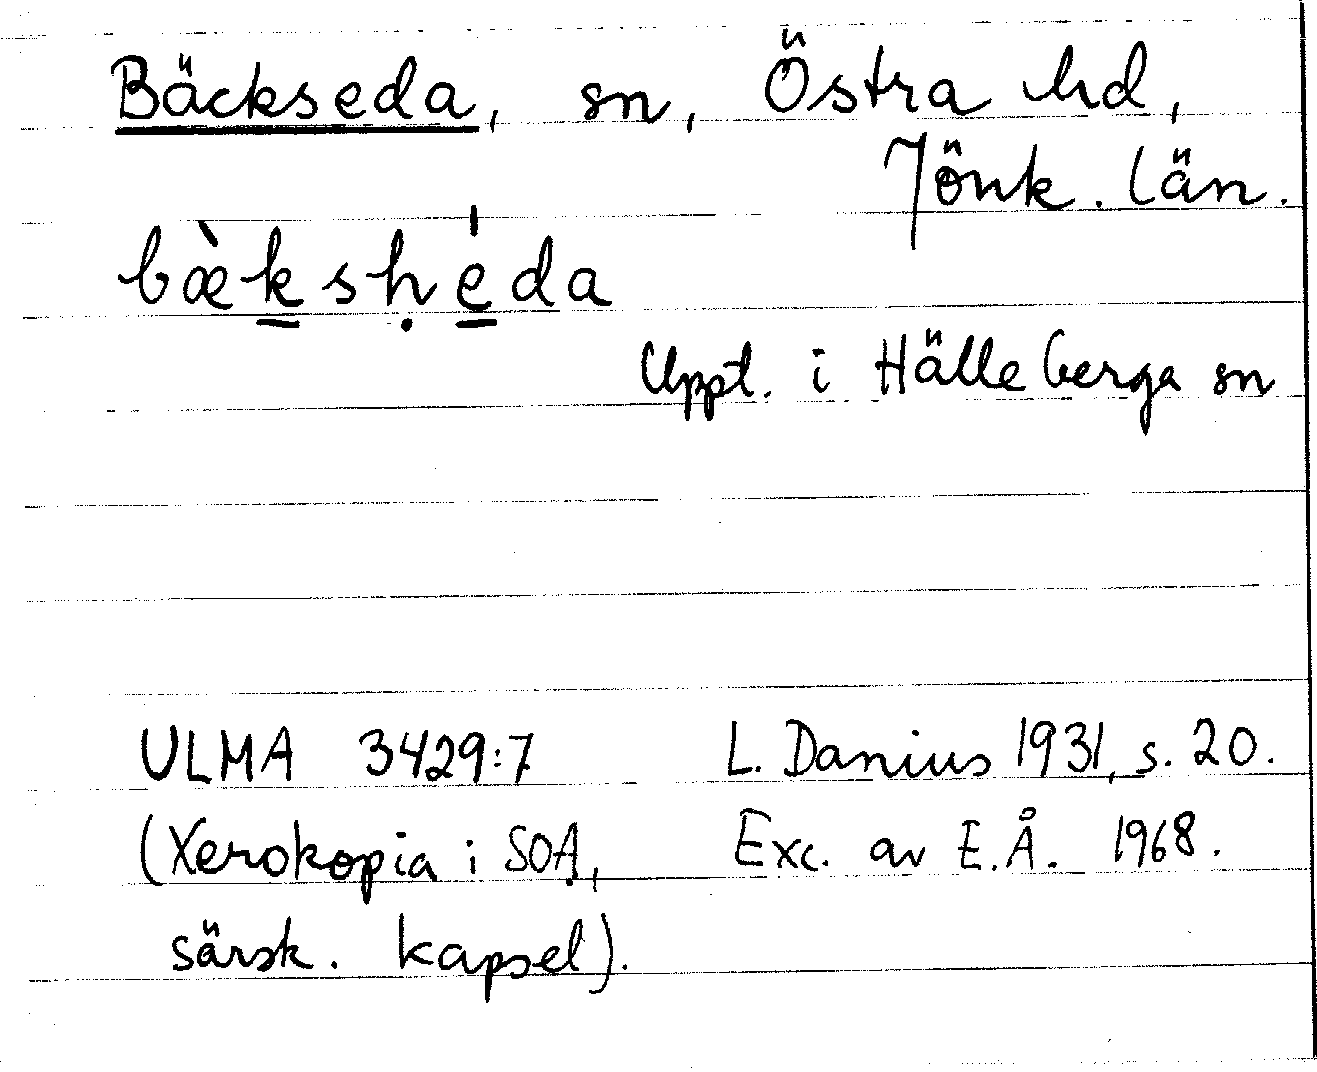 Bäckseda, sn, Östra hd,
Jönk. län.
bæ̀ḵsḥé̱da
Uppt. i Hälleberga sn
ULMA 3429:7 L. Danius 1931, s. 20.
(Xerokopia i SOA, Exc. av E.Å. 1968.
särsk. kapsel).